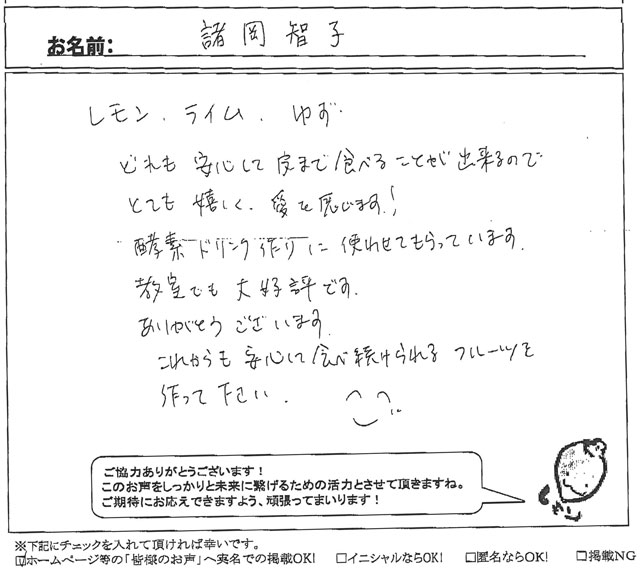 お名前: 諸岡智子
レモン、ライム、ゆず
どれも安心して皮まで食べることが出来るので
とても嬉しく、愛を感じます!
酵素ドリンク作りに使わせてもらっています。
教室でも大好評です。
ありがとうございます。
これからも安心して食べ続けられるフルーツを
作って下さい。
ご協力ありがとうございます!
このお声をしっかりと未来に繋げるための活力とさせて頂きますね。
ご期待にお応えできますよう、頑張ってまいります!
※下記にチェックを入れて頂ければ幸いです。
☑ホームページ等の「皆様のお声」へ実名での掲載OK! □イニシャルならOK! □匿名ならOK! □掲載NG